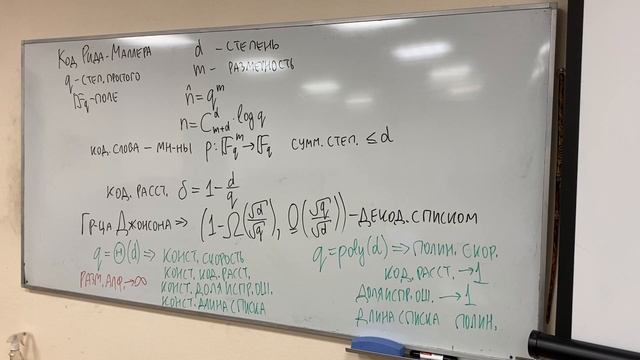 Код Рида-Маллера
q - степ. простого
𝔽q - поле
d - степень
m - размерность
n̂ = q^m
n = C^d_{m+d} · log q
код. слова - мн-ны p: 𝔽q^m → 𝔽q сумм. степ. ≤ d
код. расст. δ = 1 - d/q
Гр-ца Джонсона ⇒ (1 - Ω(√d/√q), O(√q/√d)) - декод. списком
q = Θ(d) ⇒ конст. скорость
конст. код. расст.
конст. доля испр. ош.
конст. длина списка
разм. алф. → ∞
q = poly(d) ⇒ полин. скор.
код. расст. → 1
доля испр. ош. → 1
длина списка полин.